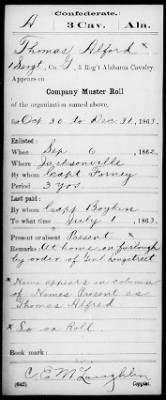 Confederate.
A 3 Cav. Ala.
Thomas Alford x
1 Sergt, Co. G, 3 Reg't Alabama Cavalry.
Appears on
Company Muster Roll
of the organization named above,
for Oct 30 to Dec 31, 1863.
Enlisted:
When Sep 6, 1862.
Where Jacksonville
By whom Capt Forney
Period 3 yrs
Last paid:
By whom Capt Boykin
To what time July 1, 1863.
Present or absent Present x
Remarks: At home on furlough
by order of Genl Longstreet
x Name appears in column
of Names Present as
Thomas Alfred
x So on Roll.
Book mark:
C. E. McLaughlin
(642) Copyist.